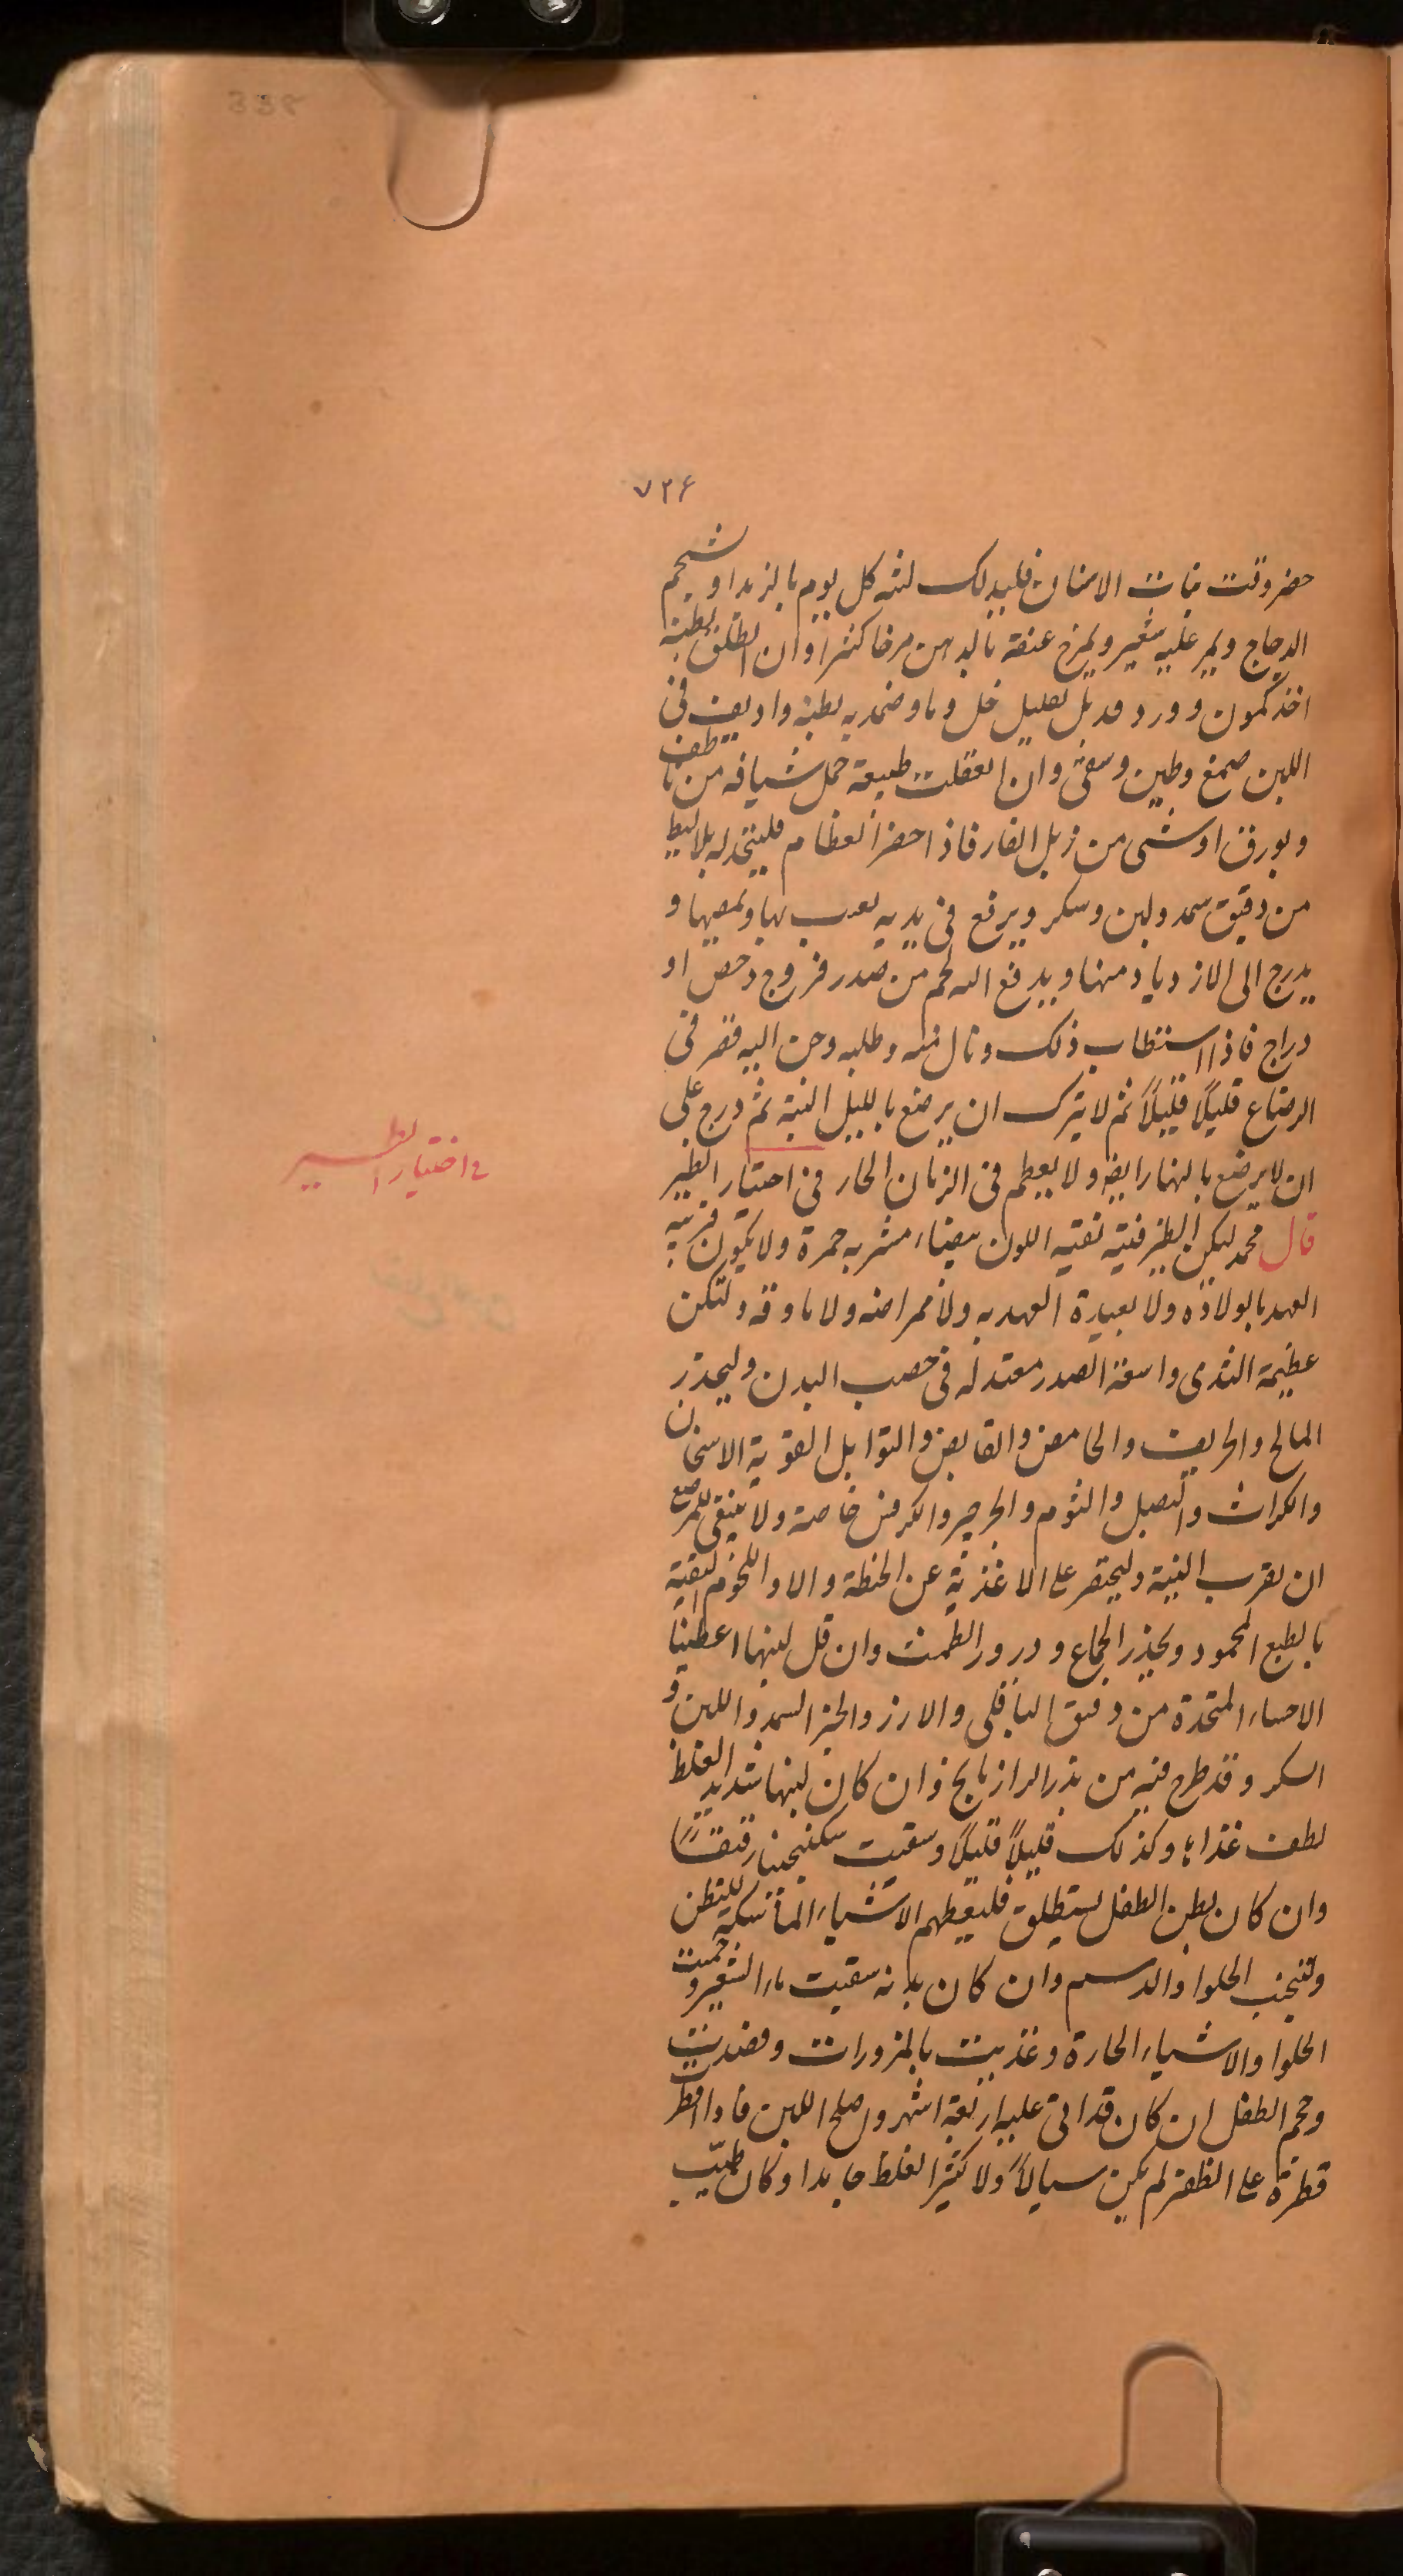 ۷۲۶
حضر وقت نبات الاسنان فليدلك لثته كل يوم بالزبد او شحم
الدجاج ويمر عليه شعير ويمرخ عنقه بالدهن مرخا كثيرا وان انطلق بطنه
اخذ كمون وورد وبل بقليل خل وماء وضمد به بطنه واديف فى
اللبن صمغ وطين وسقى وان اعتقلت طبيعة حمل شيافه من ناطف
وبورق او شى من زبل الفار فاذا حضر الفطام فليتخذ له بلاليط
من دقيق سمد ولبن وسكر ويرفع فى يديه يلعب بها ويمصها و
يدرج الى الازدياد منها ويدفع اليه لحم من صدر فروج رخص او
دراج فاذا استطاب ذلك ونال منه وطلبه وحن اليه قصر فى
الرضاع قليلًا قليلًا ثم لا يترك ان يرضع بالليل البتة ثم درج على
ان لا يرضع بالنهار ايضا ولا يفطم فى الزمان الحار فى اختيار الظير
فى اختيار الظير
قال محمد ليكن الظير فتيه نقيه اللون بيضاء مشربه حمرة ولا تكون قريبه
العهد بالولاده ولا بعيدة العهد به ولا ممراضه ولا ماوفه ولتكن
عظيمة الثدى واسعة الصدر معتدله فى خصب البدن وليحذر
المالح والحريف والحامض والقابض والتوابل القوية الاسخان
والكراث والبصل والثوم والجرجير والكرفس خاصة ولا ينبغى للمرضع
ان يقرب البتة وليختصر على الاغذية عن الحنطة والارز واللحوم النقية
بالطبع المحمود ويحذر الجماع ودرور الطمث وان قل لبنها اعطيناها
الاحساء المتخذة من دقيق الباقلى والارز والخبز السمد واللبن و
السكر وقد طرح فيه من بزر الرازيانج وان كان لبنها شديد الغلظ
لطف غذاها وكذلك قليلًا قليلًا وسقيت سكنجبينا رقيقا
وان كان بطن الطفل يستطلق فليعطهم الاشياء الماسكة للبطن
ولتجنب الحلوا والدسم وان كان به سقيت ماء الشعير وحميت
الحلوا والاشياء الحارة وغذيت بالمزورات وفصدت
وحجم الطفل ان كان قد اتى عليه اربعة اشهر واصلح اللبن ما اذا قطرت
قطرة على الظفر لم يكن سيالًا ولا كثير الغلظ جامدا وكان طيب